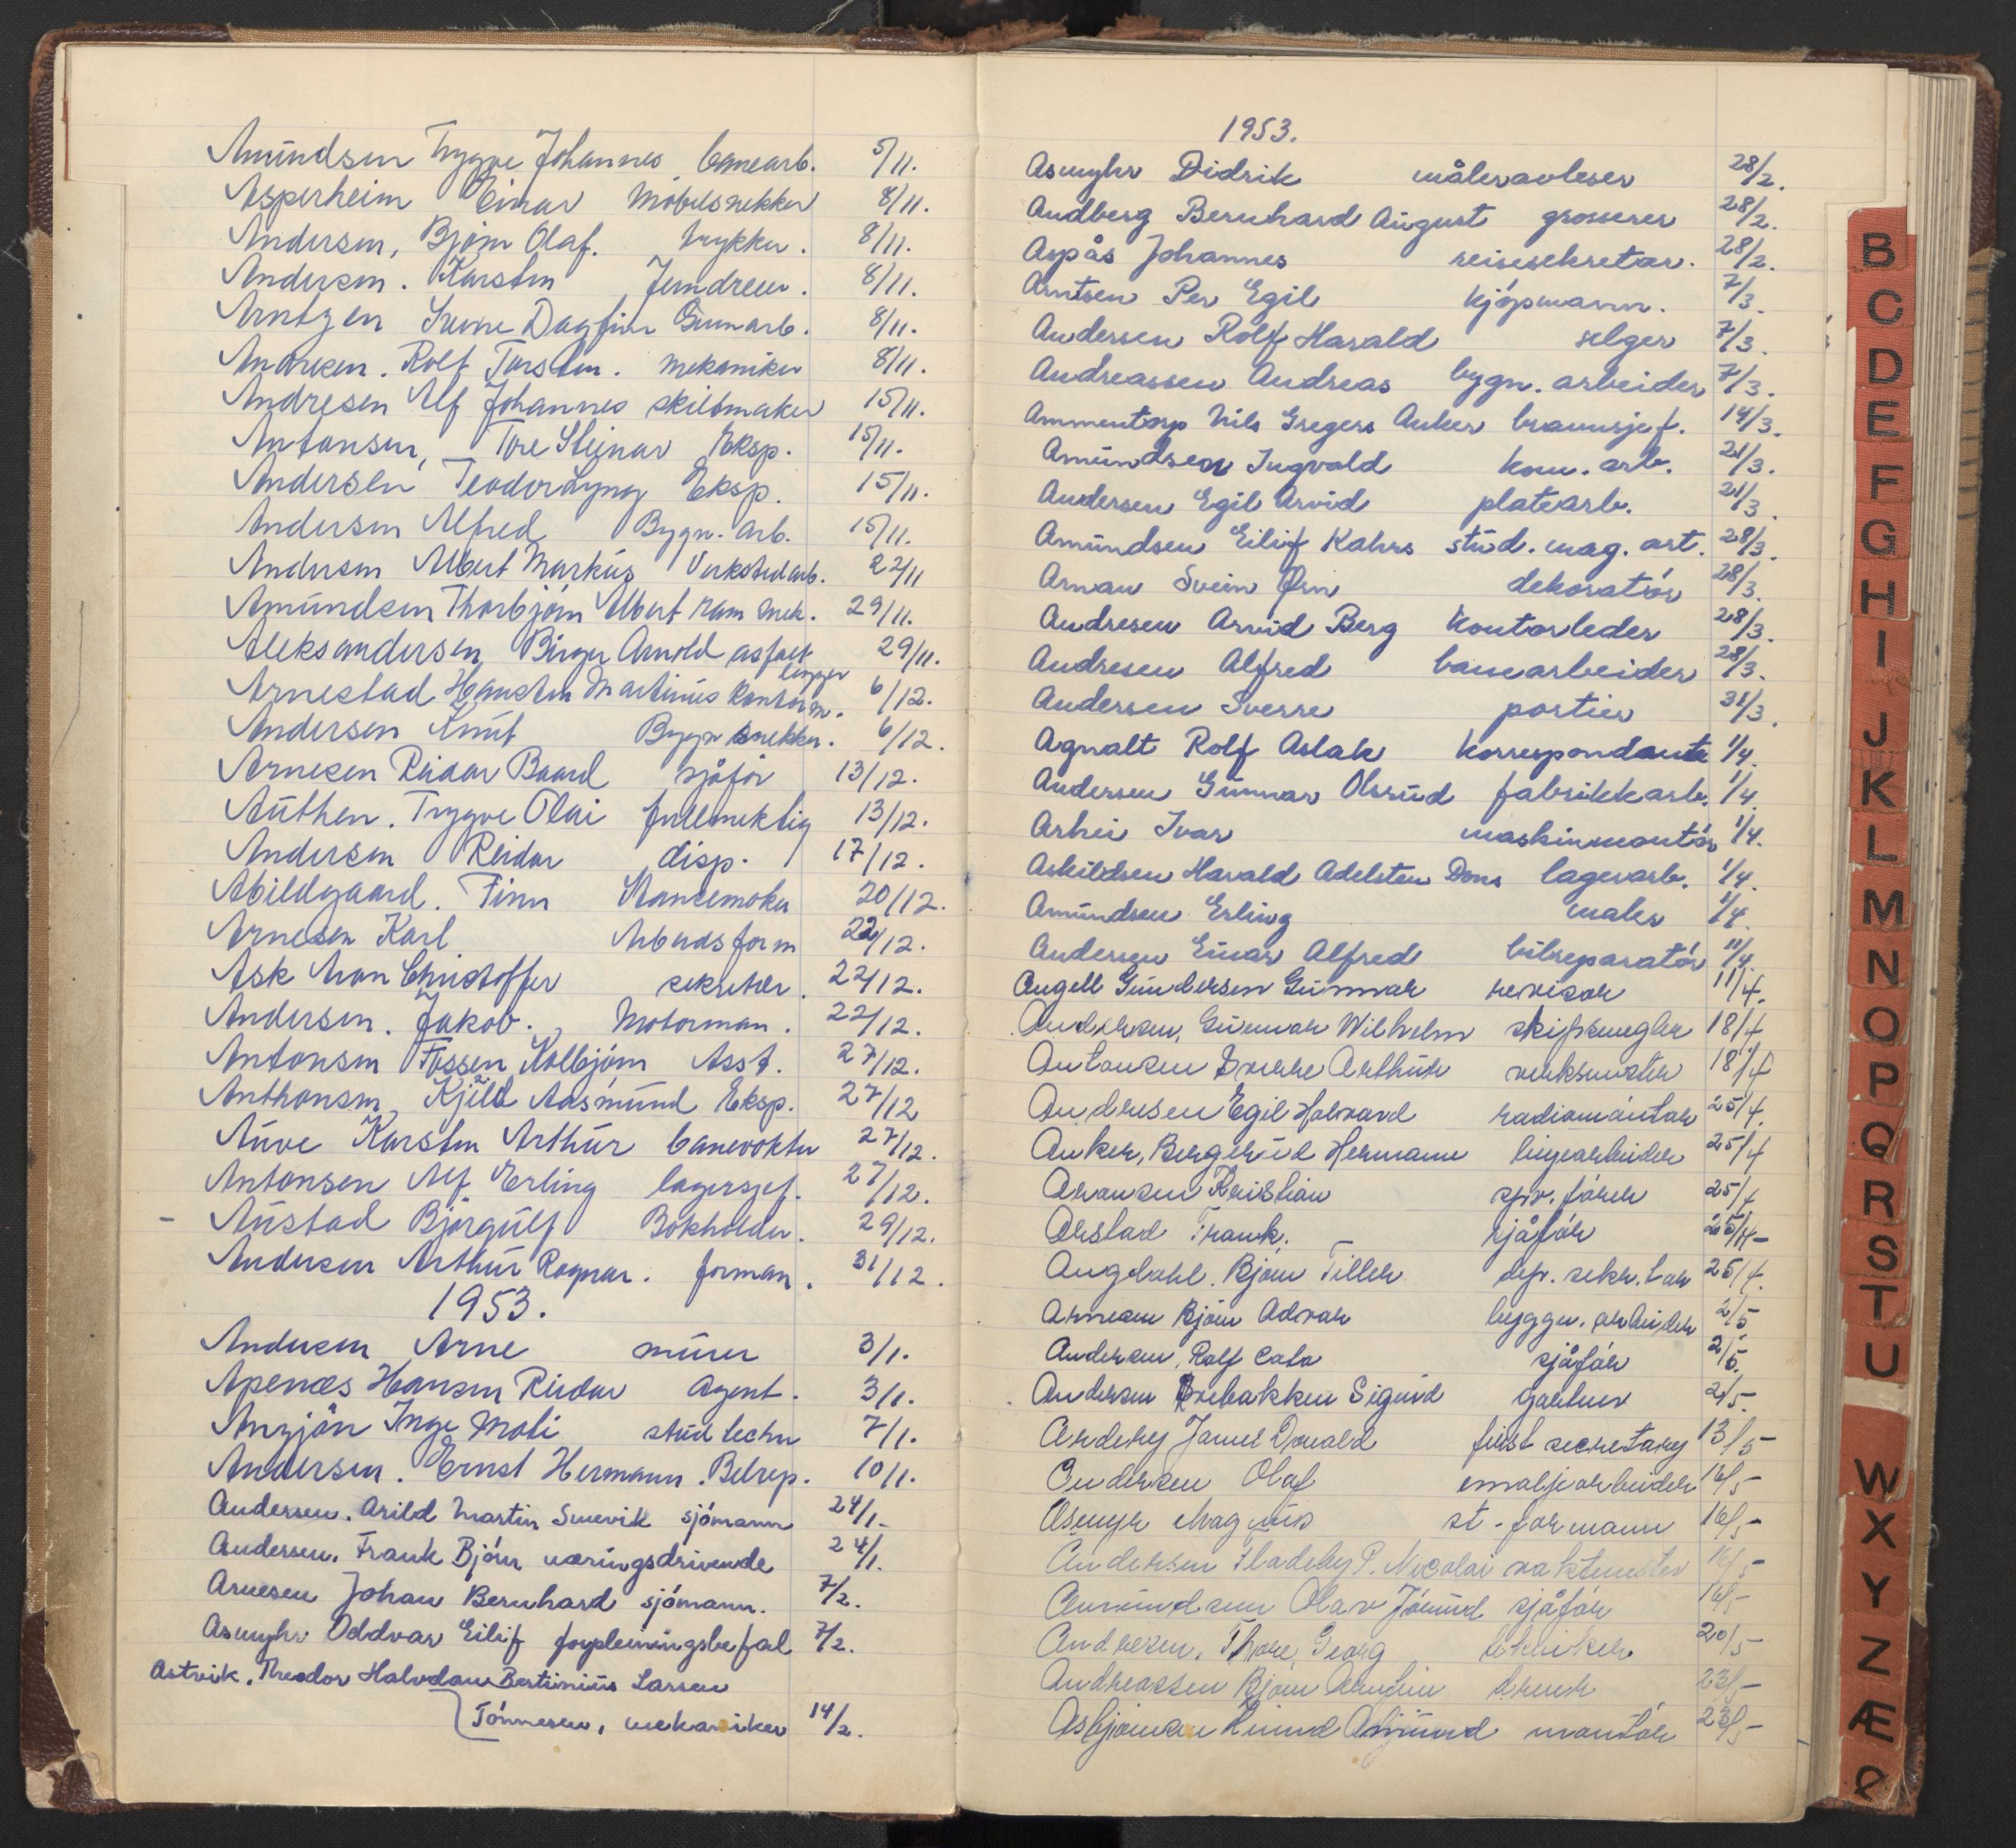 Amundsen Trygve Johannes banearb. 5/11.
Asperheim Einar Møbelsnekker 8/11.
Andersen, Bjørn Olaf. trykker. 8/11.
Andersen. Karsten 8/11.
Arntzen Dagfinn Gummarb. 8/11.
Andresen. Rolf Torsten. mekaniker 8/11.
Andresen Alf Johannes skiltmaker 15/11.
Antonsen, Tore Steinar Eksp. 15/11.
Andersen Eksp. 15/11.
Andersen Alfred Bygn. arb. 15/11.
Andersen Albert Markus Verkstedarb. 22/11
Amundsen Thorbjørn Albert mek. 29/11.
Aleksandersen Birger Arnold asfalt 29/11.
legger
Arnestad Martinius kontorm. 6/12.
Andersen Knut Bygn snekker. 6/12.
Arnesen Reidar Baard sjåfør 13/12.
Authen. Trygve Olai fullmektig 13/12.
Andersen Reidar disp. 17/12.
Abildgaard. Finn Stansemaker 20/12.
Arnesen Karl Arbeidsform 22/12.
Ask Aron Christoffer sekretær. 22/12.
Andersen. Jakob. Motorman. 22/12.
Antonsen Fossen Kolbjørn Asst. 27/12.
Anthonsen, Kjell Aasmund Eksp. 27/12
Auve Karsten Arthur banevokter 27/12.
Antonsen Alf Erling lagersjef. 27/12.
- Austad Bjørgulf Bokholder. 29/12.
Andersen Arthur Ragnar. forman. 31/12.
1953.
Andersen Arne murer 3/1.
Apenæs Hansen Reidar Agent. 3/1.
Inge stud techn 7/1.
Andersen. Ernst Hermann. Belrep. 10/1.
Andersen. Arild Martin Smevik sjømann 24/1-
Andersen. Frank Bjørn næringsdrivende 24/1.
Arnesen Johan Bernhard sjømann. 7/2.
Asmyhr Oddvar Eilif forpleiningsbefal 7/2.
Astvik. Theodor Halvdan Bertinius Larsen
Tønnesen, mekaniker 14/2.
1953.
Asmyhr Didrik måleravleser 28/2.
Audberg Bernhard August grosserer 28/2.
Aspås Johannes reisesekretær. 28/2.
Arntsen Per Egil kjøpmann. 7/3.
Andersen Rolf Harald selger 7/3.
Andreassen Andreas bygn. arbeider 7/3.
Ammentorp Nils Gregers Anker brannsjef. 14/3.
Amundsen Ingvald kom. arb. 21/3.
Andersen Egil Arvid platearb. 21/3.
Amundsen Eilif Kahrs stud. mag. art. 28/3.
Arnau Svein Ørn dekoratør 28/3.
Andresen Arvid Berg kontorleder 28/3.
Andresen Alfred banearbeider 28/3.
Andersen Sverre portier 31/3.
Agnalt Rolf Aslak korrespondent 1/4.
Andersen Gunnar Olsrud fabrikkarb. 1/4.
Arhei Ivar maskinmontør 1/4.
Askildsen Harald Adelsten Dons lagerarb. 1/4.
Amundsen Erling maler 1/4.
Andersen Einar Alfred bilreparatør 11/4.
Angell Gundersen Gunnar revisor 11/4.
Andersen, Gunnar Wilhelm skipsmegler 18/4
Antonsen Sverre Arthur verksmester 18/4
Andresen Egil Halvard radiomontør 25/4.
Anker, Bergerud Hermann linjearbeider 25/4
Aronsen Kristian spv. fører 25/4
Arstad Frank. sjåfør 25/4-
Angdahl. Bjørn Tiller dep. sekr. tær 25/4.
Arnesen Bjørn Advar byggn. arbeider 2/5
Andersen, Rolf Cato sjåfør 2/5.
Andersen Brebakken Sigurd gartner 2/5.
James Donald first secretary 13/5-
Andersen Olaf emaljearbeider 16/5-
Asmyr Magnus st. formann 16/5-
Andersen Fladeby P. Nicolai vaktmester 16/5
Amundsen Olav Jørund sjåfør 16/5
Andresen, Thore, Georg tekniker 20/5
Andreassen Bjørn 23/5-
Asbjørnsen montør 23/5-
B
C
D
E
F
G
H
I
J
K
L
M
N
O
P
Q
R
S
T
U
W
X
Y
Z
Æ
Ø